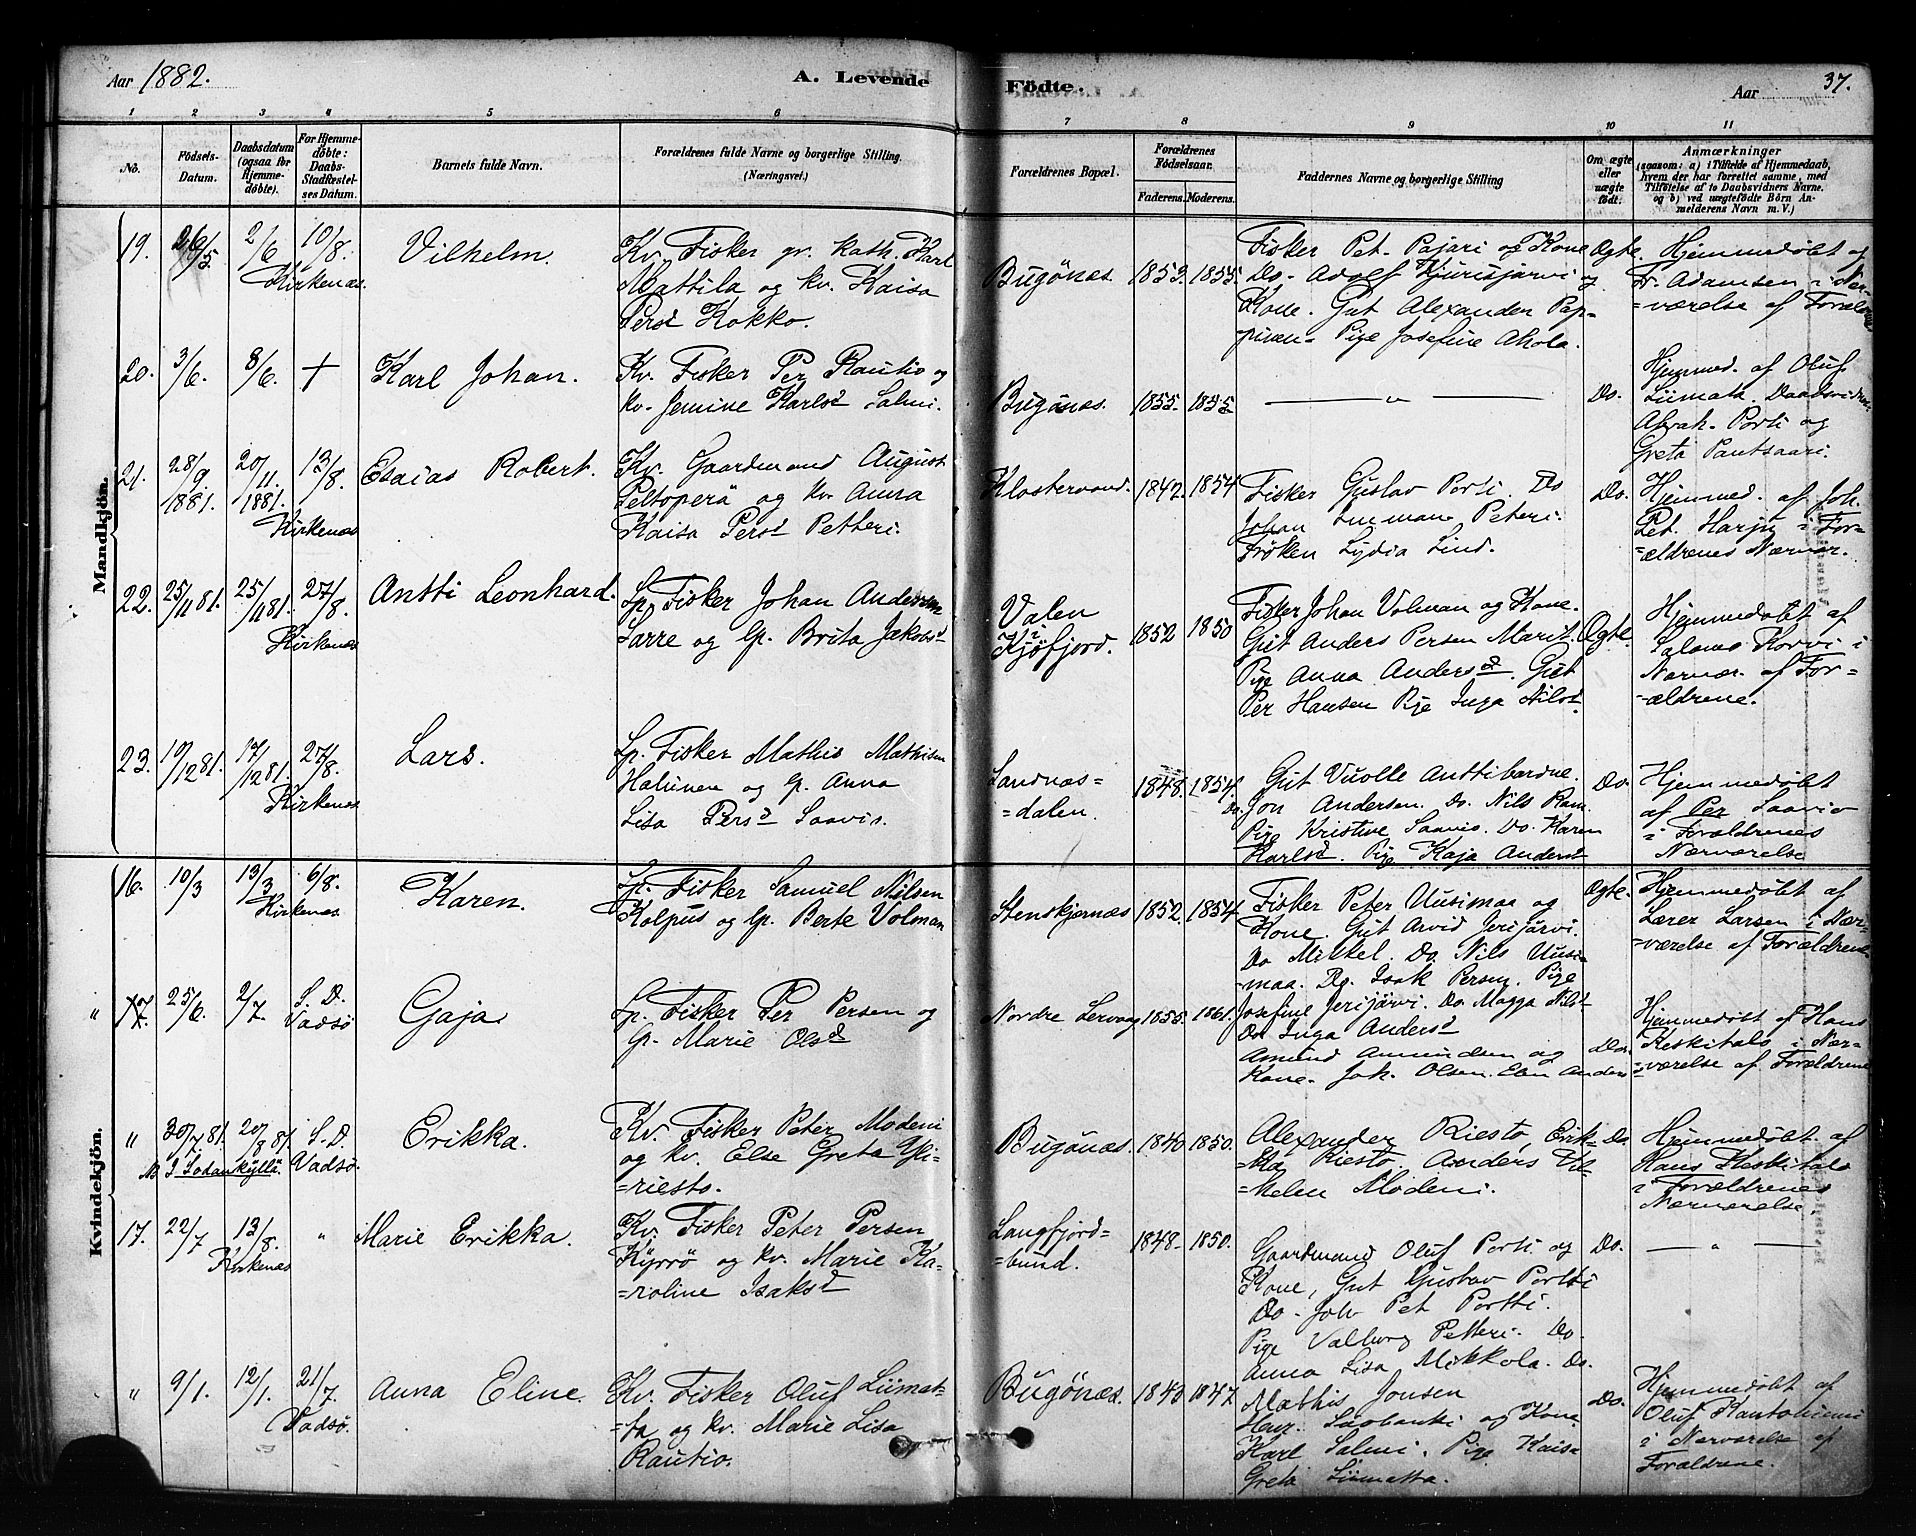 Aar 1882. A. Levende Födte. Aar 37.
1 2 3 4 5 6 7 8 9 10 11
No.
Födsels-Datum.
Daabsdatum (ogsaa for Hjemme-döbte).
For Hjemme-döbte: Daabs-Stadfæstel-ses Datum.
Barnets fulde Navn.
Forældrenes fulde Navne og borgerlige Stilling.
(Næringsvei.)
Forældrenes Bopæl.
Forældrenes Födselsaar.
Faderens. Moderens.
Faddernes Navne og borgerlige Stilling
Om ægte eller uægte födt.
Anmærkninger
(saasom: a) i Tilfælde af Hjemmedaab,
hvem der har forrettet samme, med
Tilföielse af to Daabsvidners Navne.
og b) ved uægtefödte Börn An-
melderens Navn m. V.)
Mandkjön.
19. 2/6 10/8. Kirkenæs. Vilhelm.
Kv. Fisker gr. kath. Karl
Mattila og kv. Kaisa
Persd Kokko.
Bugönæs 1853. 1855.
Fisker Pet. Pajari og Kone
Do. Adolf Kjurisjarvi og
Kone. Gut Alexander Pap-
pinen. Pige Josefine Ahola.
Ogte.
Hjemmedøbt af
Fr. Adamsen i Nær-
=værelse af Forældrene
20. 3/6. 8/6. + Karl Johan.
Kv. Fisker Per Rautio og
kv. Jemine Karlsd Salmi.
Bugönæs. 1855. 1855
— " —
Do.
Hjemmed. af Oluf
Liimata. Daabsvidner
Abrah. Porti og
Greta Pantsaari.
21. 28/9. 1881. 20/11. 1881. 13/8. Kirkenæs Esaias Robert.
Kv. Gaardmand August
Peltoperä og kv. Anna
Kaisa Persd Petteri.
Klostervand. 1842. 1854
Fisker Gustav Porti. Do
Johan Immane Peteri.
Frøken Lydia Lind.
Do.
Hjemmed. af Joh.
Pet. Harju i For-
=ældrenes Nærvær.
22. 25/11 81. 25/11 81. 27/8. Kirkenæs Antti Leonhard.
Lp. Fisker Johan Andersen
Sarre og lp. Brita Jakobsd
Valen i Kjøfjord. 1852 1850
Fisker Johan Volman og Kone.
Gut Anders Persen Marit.
Pige Anna Andersd. Gut
Per Hansen Pige Inga Nilsd.
Ogte.
Hjemmedøbt af
Salamo Korvi i
Nærvær. af For-
=ældrene.
23. 10/12 81. 17/12 81. 27/8. Kirkenæs Lars.
Lp. Fisker Mathis Mathisen
Halunen og lp. Anna
Lisa Persd Saavis.
Sandnæs=
=dalen. 1848. 1854.
Gut Vuolle Anttibardne.
Do. Jon Andersen. Do. Nils Ram.
Pige Kristine Saavis. Do. Karen
Karlsd. Pige Kaja Andersd
Do.
Hjemmedøbt
af Per Saavio
i Forældrenes
Nærværelse
Kvindekjön.
16. 10/3 13/3 6/8. Kirkenæs Karen.
Lp. Fisker Samuel Nilsen
Kolpus og lp. Berte Volman
Stenskjernæs 1852. 1854
Fisker Peter Uusimaa og
Kone. Gut Arvid Jerijärvi.
Do Mikkel. Do. Nils Uusi-
maa. Do. Isak Persen. Pige
Josefine Jerijärvi. Do. Magga Nilsd
Do Inga Andersd
Ogte.
Hjemmedøbt af
Lærer Larsen i Nær-
=værelse af Forældrene
" 17. 25/6. 2/7 S. D. Vadsö Gaja.
Lp. Fisker Per Persen og
lp. Marie Olsd
Nordre Lervaag 1855. 1861.
Amund Amundsen og
Kone. Joh. Olsen. Elen Anders
Do.
Hjemmedøbt af Hans
Keskitalo i Nær-
=værelse af Forældrene
" 30/7 81. 20/8 81. S. D. Vadsö. Erikka.
NB I Sodankyllä.
Kv. Fisker Peter Modeni
og kv. Else Greta Yli-
=riesto.
Bugönæs. 1840 1850.
Alexander Riesto, Erik-
=ka Riesto Anders Vil-
=helm Modeni.
Do.
Hjemmedøbt af
Hans Keskitalo
i Forældrenes
Nærværelse.
17. 22/7 13/8. Kirkenæs " Marie Erikka.
Kv. Fisker Peter Persen
Kyrrö og kv. Marie Ka-
=roline Isaksd
Langfjord=
=bund. 1848. 1850.
Gaardmand Oluf Porti og
Kone, Gut Gustav Portti
Do. Joh Pet Portti.
Pige Valborg Petteri. Do.
Anna Lisa Mikkola. Do.
Do.
— " —
" 9/1. 12/1. 21/7. Vadsö. Anna Eline.
Kv. Fisker Oluf Liimat-
=ta og kv. Marie Lisa
Rautio.
Bugönæs. 1843 1847.
Mathis Jonsen
Henr. og Kone
Karl Salmi. Pige Kaisa
Greta Liimatta.
Do.
Hjemmedøbt af
Oluf Rantoniemi
i Nærværelse af
Forældrene.